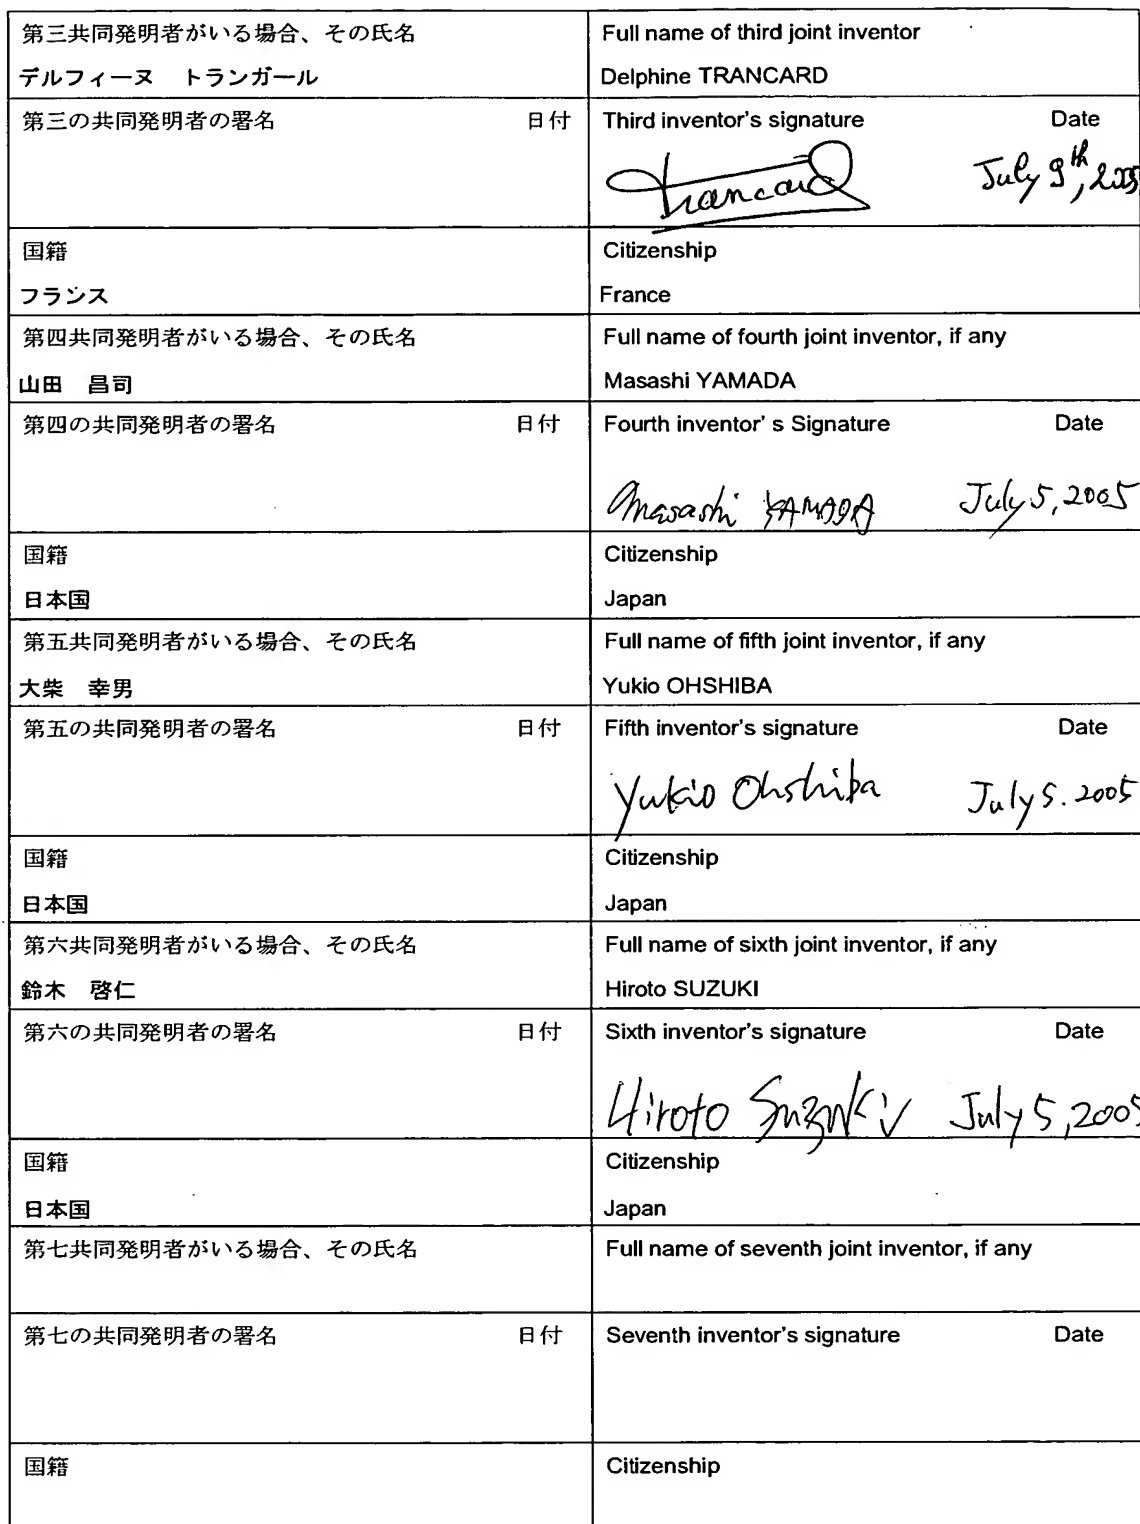 第三共同発明者がいる場合、その氏名
デルフィーヌ　トランガール
Full name of third joint inventor
Delphine TRANCARD
第三の共同発明者の署名 日付
Third inventor's signature Date
Trancard July 9th, 2005
国籍
フランス
Citizenship
France
第四共同発明者がいる場合、その氏名
山田　昌司
Full name of fourth joint inventor, if any
Masashi YAMADA
第四の共同発明者の署名 日付
Fourth inventor' s Signature Date
Masashi YAMADA July 5, 2005
国籍
日本国
Citizenship
Japan
第五共同発明者がいる場合、その氏名
大柴　幸男
Full name of fifth joint inventor, if any
Yukio OHSHIBA
第五の共同発明者の署名 日付
Fifth inventor's signature Date
Yukio Ohshiba July 5. 2005
国籍
日本国
Citizenship
Japan
第六共同発明者がいる場合、その氏名
鈴木　啓仁
Full name of sixth joint inventor, if any
Hiroto SUZUKI
第六の共同発明者の署名 日付
Sixth inventor's signature Date
Hiroto Suzuki July 5, 2005
国籍
日本国
Citizenship
Japan
第七共同発明者がいる場合、その氏名
Full name of seventh joint inventor, if any
第七の共同発明者の署名 日付
Seventh inventor's signature Date
国籍
Citizenship